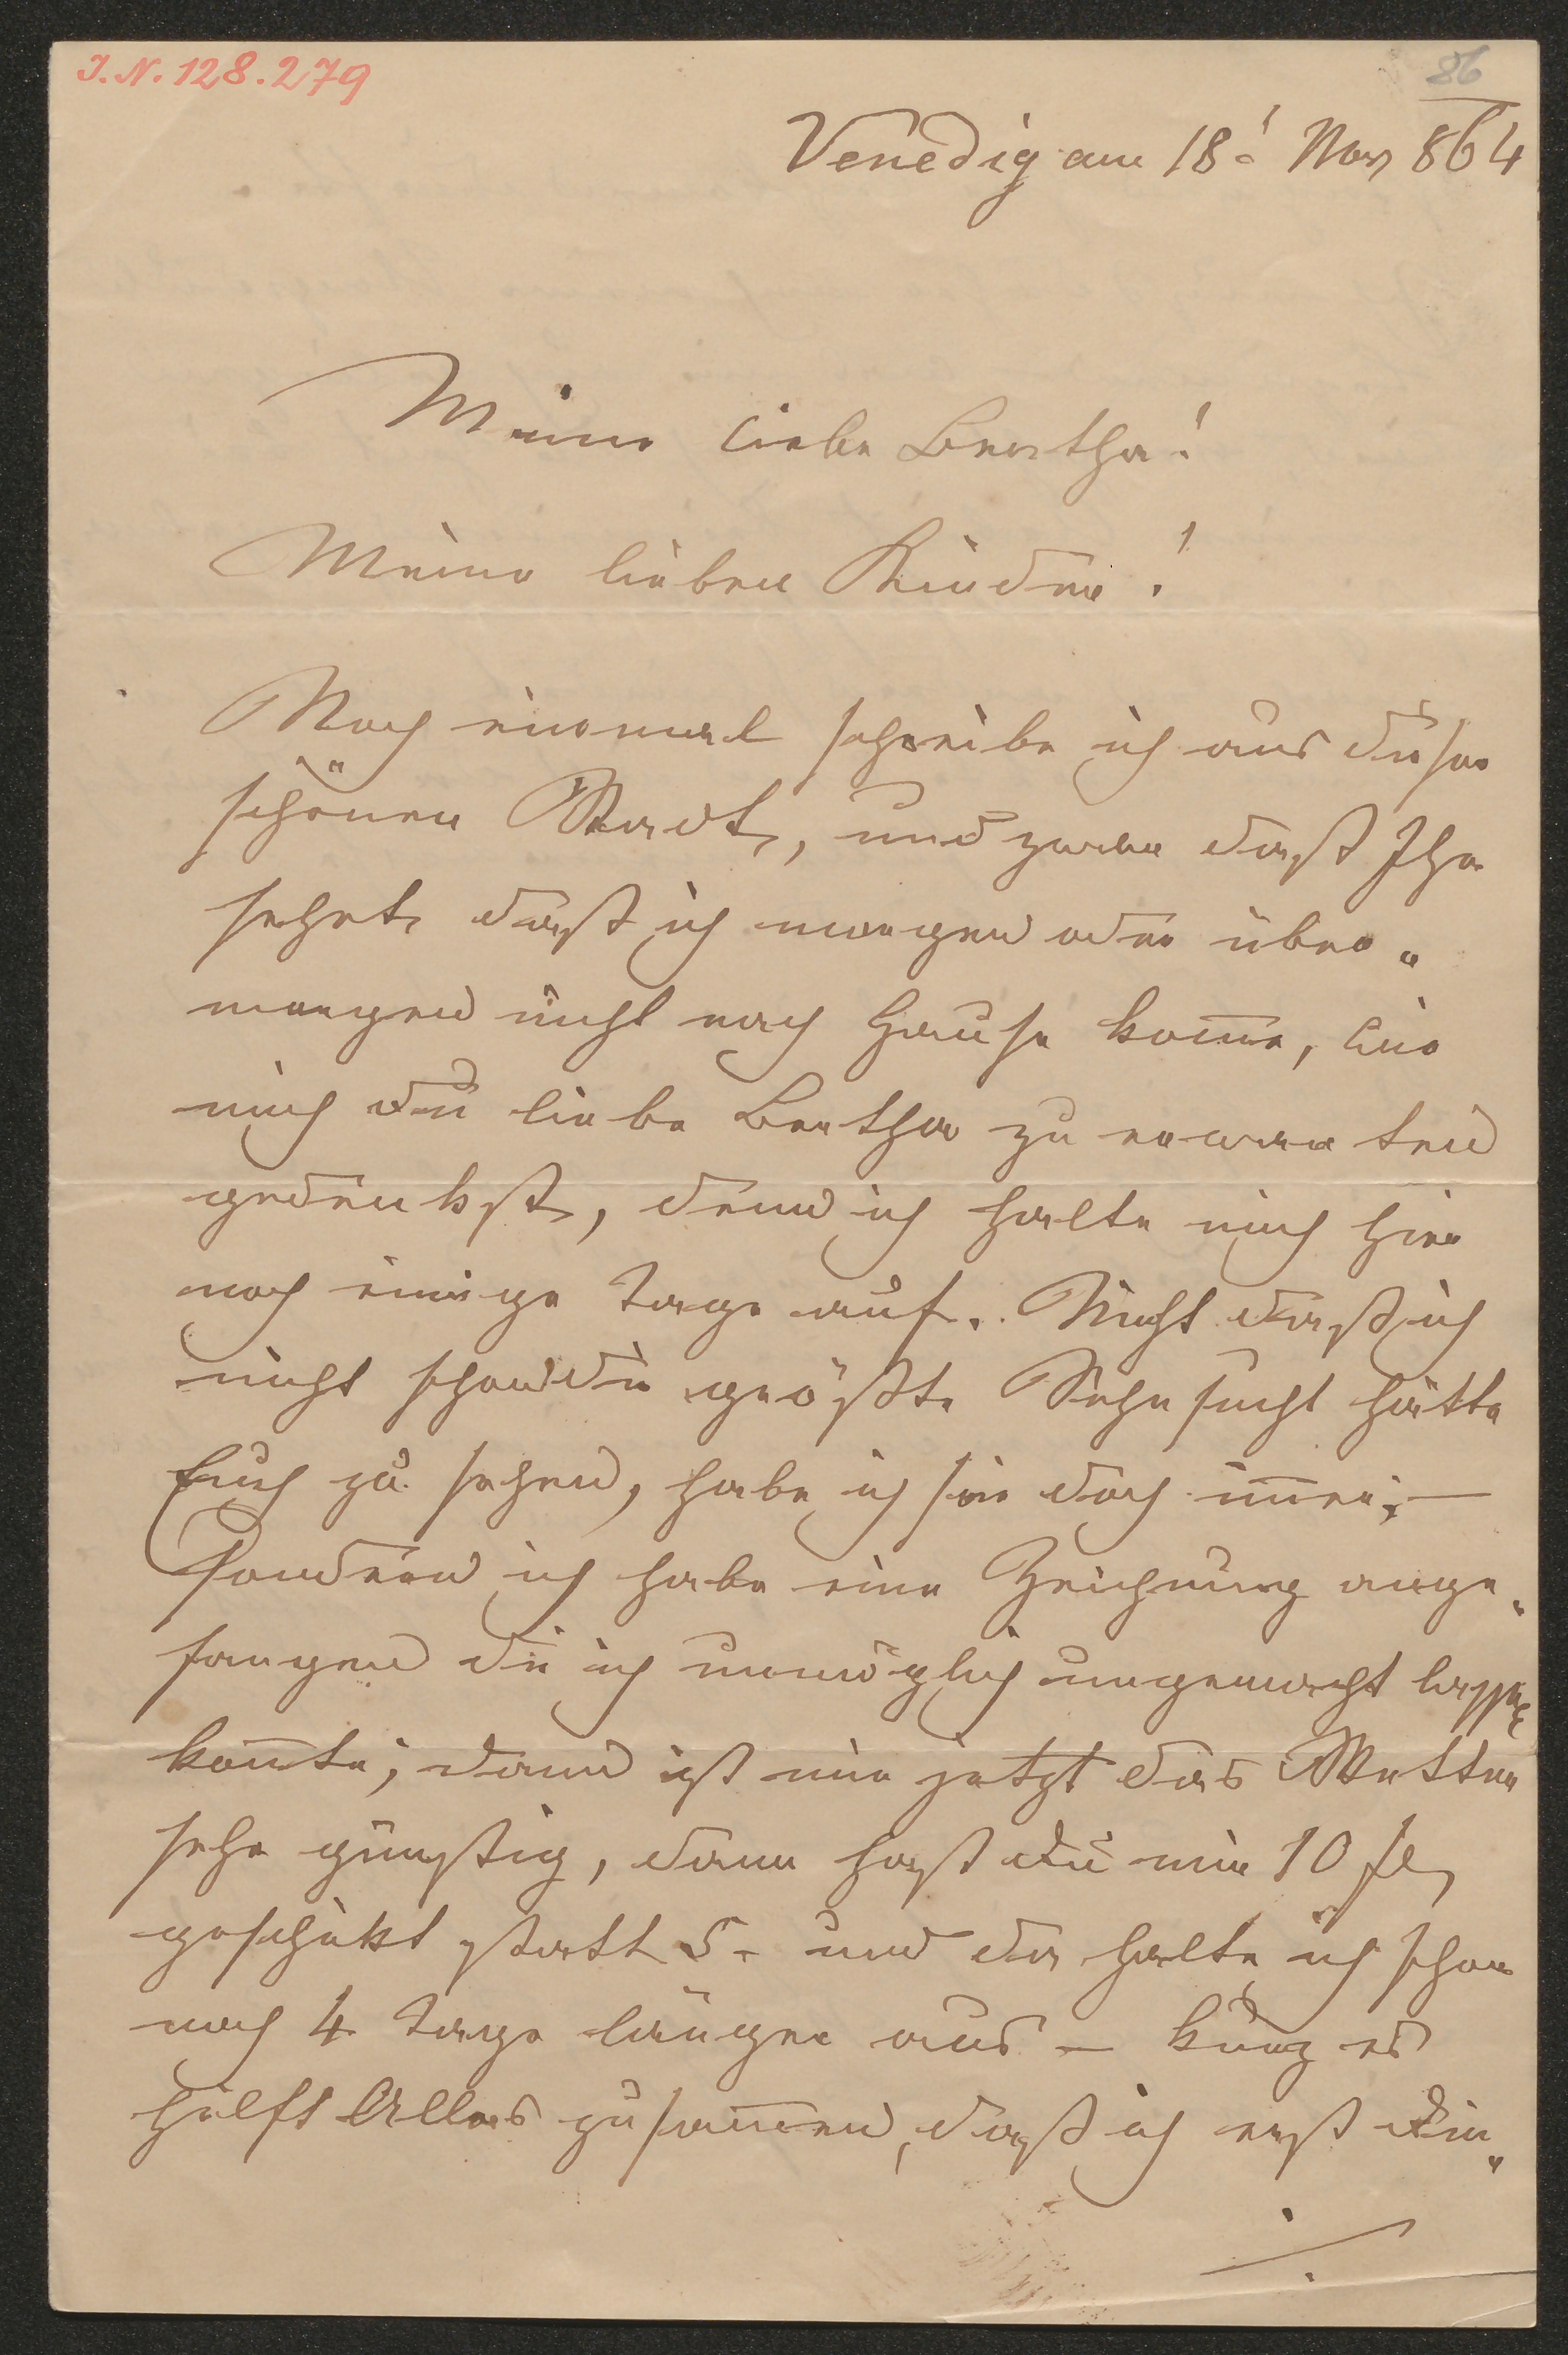 I. N. 128.279
86
Venedig am 18t Nov 864
Meine liebe Bertha!
Meine lieben Kinder!
Noch einmal schreibe ich aus dieser
schönen Stadt, und zwar daß Ihr
sehet, daß ich morgen oder über„
morgen nicht nach Hause komme, wie
mich du liebe Bertha zu erwarten
gedenkst, denn ich halte mich hier
noch einige Tage auf. Nicht daß ich
nicht schon die größte Sehnsucht hätte
Euch zu sehen, habe ich sie doch immer, —
sondern ich habe eine Zeichnung ange„
fangen die ich unmöglich ungemacht lassen
konnte; dann ist mir jetzt das Wetter
sehr günstig, dann hast du mir 10 fl,
geschikt statt 5 - und da halte ich schon
noch 4 Tage länger aus — kurz es
hilft Alles zusammen, daß ich erst Din„
./.